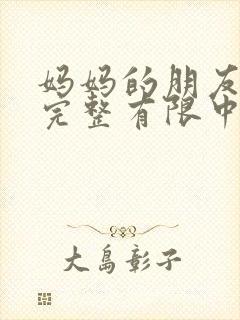 妈妈的朋友
完整有限中
大島彰子